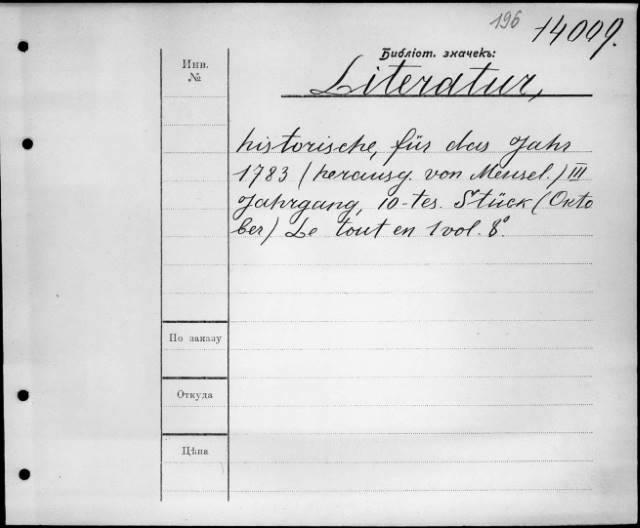 196 14009.
Библіот. значекъ:
Literatur,
Инв.
№
historische, für das Jahr
1783 (herausg. von Meusel.) III
Jahrgang, 10-tes. Stück (Okto
ber) Le tout en 1 vol. 8°.
По заказу
Откуда
Цѣна